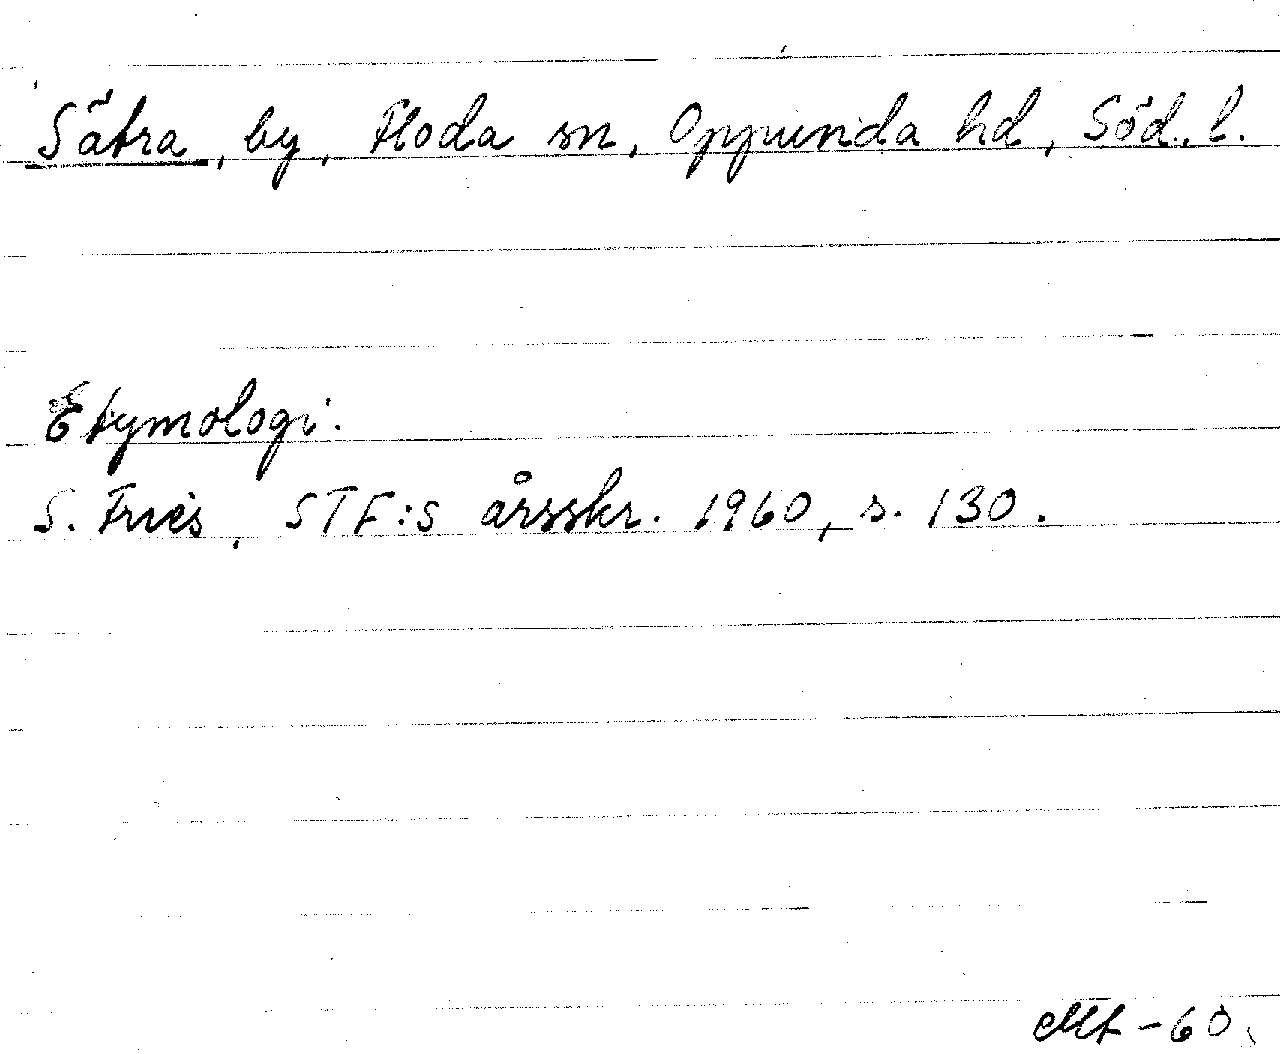 Sätra, by, Floda sn, Oppunda hd, Söd. l.
Etymologi.
S. Fries, STF:S årsskr. 1960, s. 130.
Mt - 60.